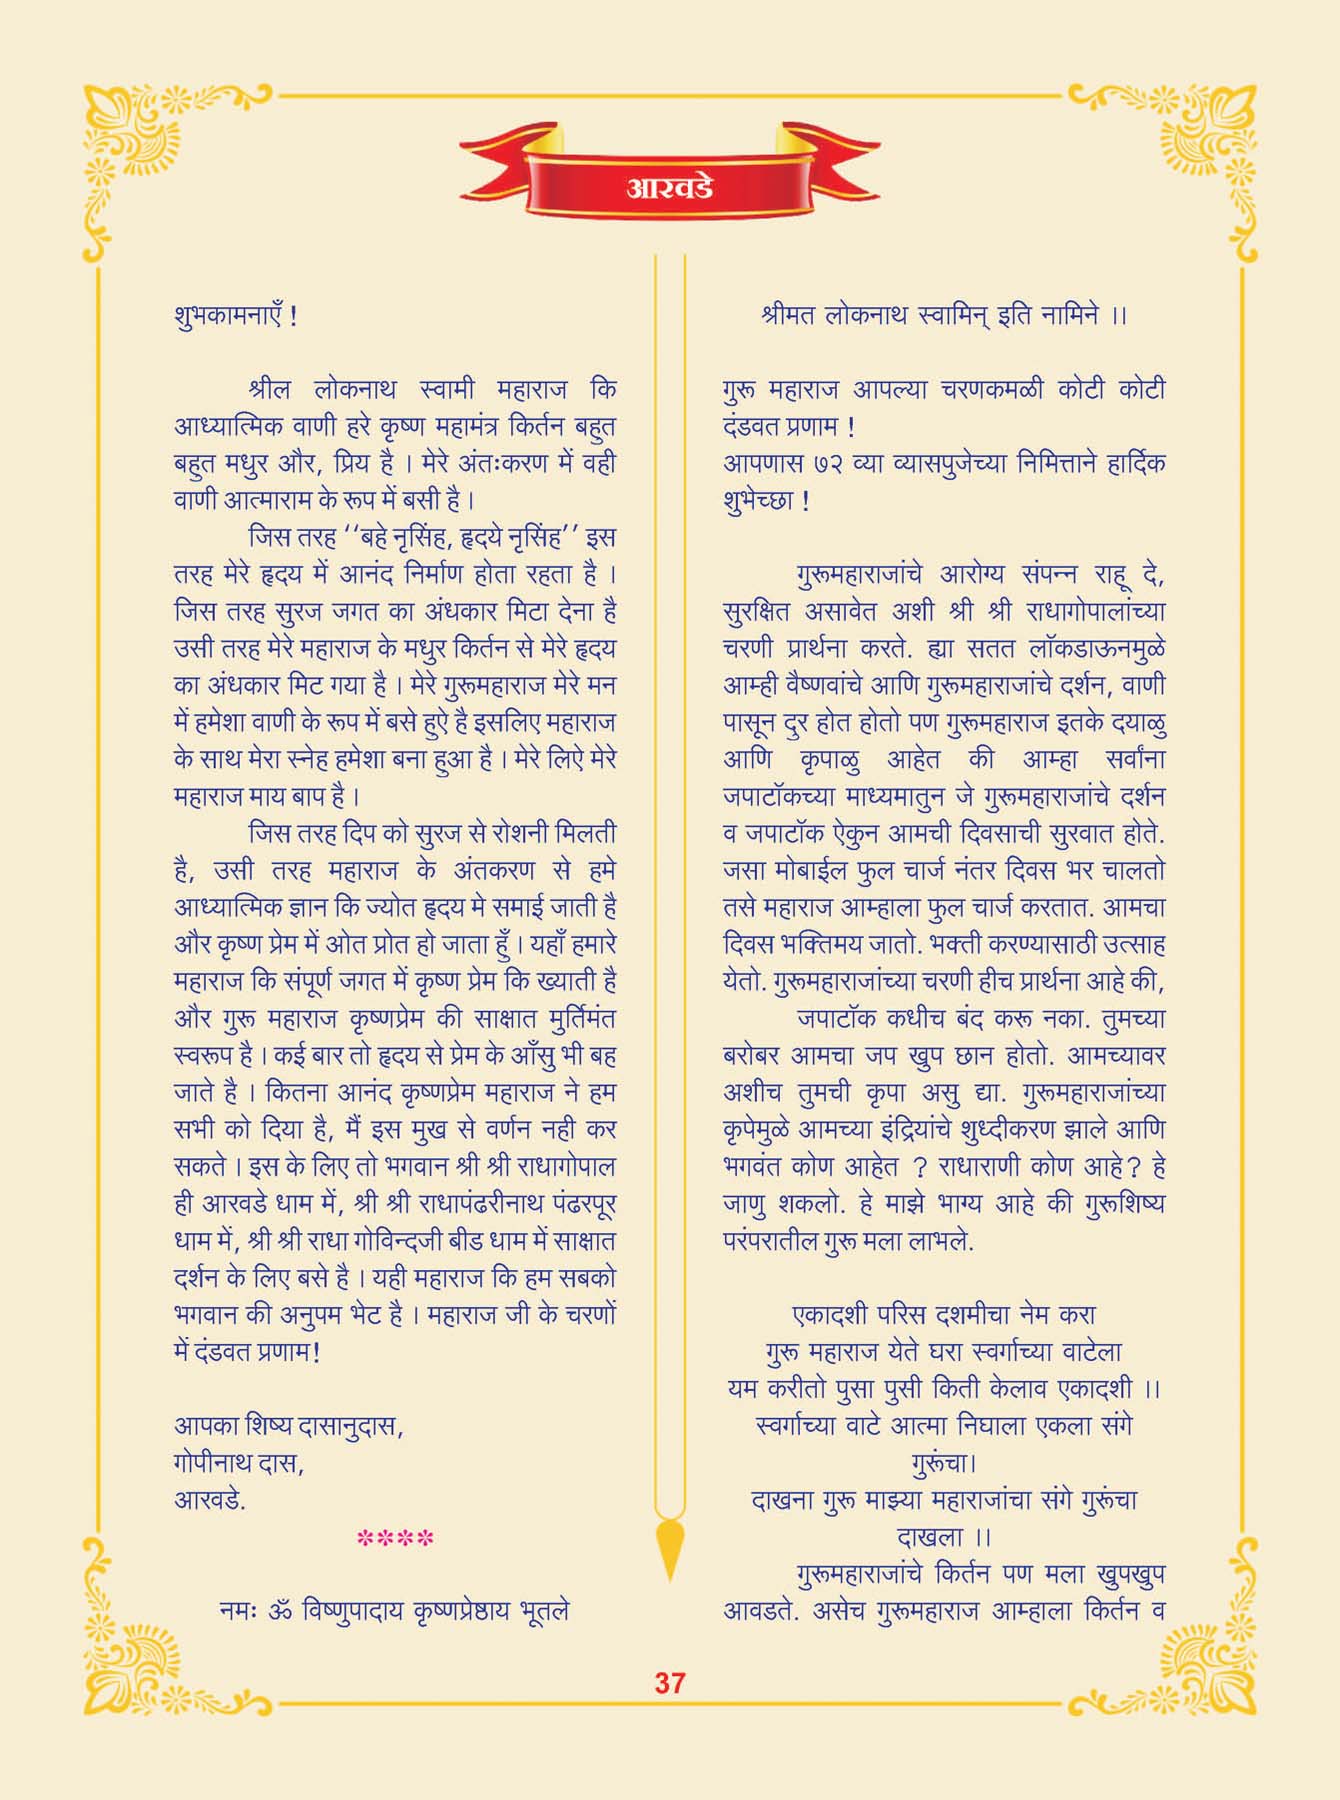 आरवडे
शुभकामनाएँ !
श्रील लोकनाथ स्वामी महाराज कि
आध्यात्मिक वाणी हरे कृष्ण महामंत्र किर्तन बहुत
बहुत मधुर और, प्रिय है । मेरे अंतःकरण में वही
वाणी आत्माराम के रूप में बसी है ।
जिस तरह ‘‘बहे नृसिंह, हृदये नृसिंह’’ इस
तरह मेरे हृदय में आनंद निर्माण होता रहता है ।
जिस तरह सुरज जगत का अंधकार मिटा देना है
उसी तरह मेरे महाराज के मधुर किर्तन से मेरे हृदय
का अंधकार मिट गया है । मेरे गुरूमहाराज मेरे मन
में हमेशा वाणी के रूप में बसे हुऐ है इसलिए महाराज
के साथ मेरा स्नेह हमेशा बना हुआ है । मेरे लिऐ मेरे
महाराज माय बाप है ।
जिस तरह दिप को सुरज से रोशनी मिलती
है, उसी तरह महाराज के अंतकरण से हमे
आध्यात्मिक ज्ञान कि ज्योत हृदय मे समाई जाती है
और कृष्ण प्रेम में ओत प्रोत हो जाता हुँ । यहाँ हमारे
महाराज कि संपूर्ण जगत में कृष्ण प्रेम कि ख्याती है
और गुरू महाराज कृष्णप्रेम की साक्षात मुर्तिमंत
स्वरूप है । कई बार तो हृदय से प्रेम के आँसु भी बह
जाते है । कितना आनंद कृष्णप्रेम महाराज ने हम
सभी को दिया है, मैं इस मुख से वर्णन नही कर
सकते । इस के लिए तो भगवान श्री श्री राधागोपाल
ही आरवडे धाम में, श्री श्री राधापंढरीनाथ पंढरपूर
धाम में, श्री श्री राधा गोविन्दजी बीड धाम में साक्षात
दर्शन के लिए बसे है । यही महाराज कि हम सबको
भगवान की अनुपम भेट है । महाराज जी के चरणों
में दंडवत प्रणाम!
आपका शिष्य दासानुदास,
गोपीनाथ दास,
आरवडे.
****
नमः ॐ विष्णुपादाय कृष्णप्रेष्ठाय भूतले
श्रीमत लोकनाथ स्वामिन् इति नामिने ।।
गुरू महाराज आपल्या चरणकमळी कोटी कोटी
दंडवत प्रणाम !
आपणास ७२ व्या व्यासपुजेच्या निमित्ताने हार्दिक
शुभेच्छा !
गुरूमहाराजांचे आरोग्य संपन्न राहू दे,
सुरक्षित असावेत अशी श्री श्री राधागोपालांच्या
चरणी प्रार्थना करते. ह्या सतत लॉकडाऊनमुळे
आम्ही वैष्णवांचे आणि गुरूमहाराजांचे दर्शन, वाणी
पासून दुर होत होतो पण गुरूमहाराज इतके दयाळु
आणि कृपाळु आहेत की आम्हा सर्वांना
जपाटॉकच्या माध्यमातुन जे गुरूमहाराजांचे दर्शन
व जपाटॉक ऐकुन आमची दिवसाची सुरवात होते.
जसा मोबाईल फुल चार्ज नंतर दिवस भर चालतो
तसे महाराज आम्हाला फुल चार्ज करतात. आमचा
दिवस भक्तिमय जातो. भक्ती करण्यासाठी उत्साह
येतो. गुरूमहाराजांच्या चरणी हीच प्रार्थना आहे की,
जपाटॉक कधीच बंद करू नका. तुमच्या
बरोबर आमचा जप खुप छान होतो. आमच्यावर
अशीच तुमची कृपा असु द्या. गुरूमहाराजांच्या
कृपेमुळे आमच्या इंद्रियांचे शुध्दीकरण झाले आणि
भगवंत कोण आहेत ? राधाराणी कोण आहे? हे
जाणु शकलो. हे माझे भाग्य आहे की गुरूशिष्य
परंपरातील गुरू मला लाभले.
एकादशी परिस दशमीचा नेम करा
गुरू महाराज येते घरा स्वर्गाच्या वाटेला
यम करीतो पुसा पुसी किती केलाव एकादशी ।।
स्वर्गाच्या वाटे आत्मा निघाला एकला संगे
गुरूंचा।
दाखना गुरू माझ्या महाराजांचा संगे गुरूंचा
दाखला ।।
गुरूमहाराजांचे किर्तन पण मला खुपखुप
आवडते. असेच गुरूमहाराज आम्हाला किर्तन व
37